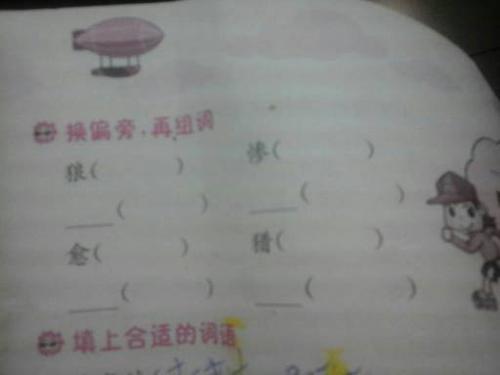 换偏旁,再组词
狼(    ) 惨(    )
___(    ) ___(    )
愈(    ) 猎(    )
___(    ) ___(    )
填上合适的词语